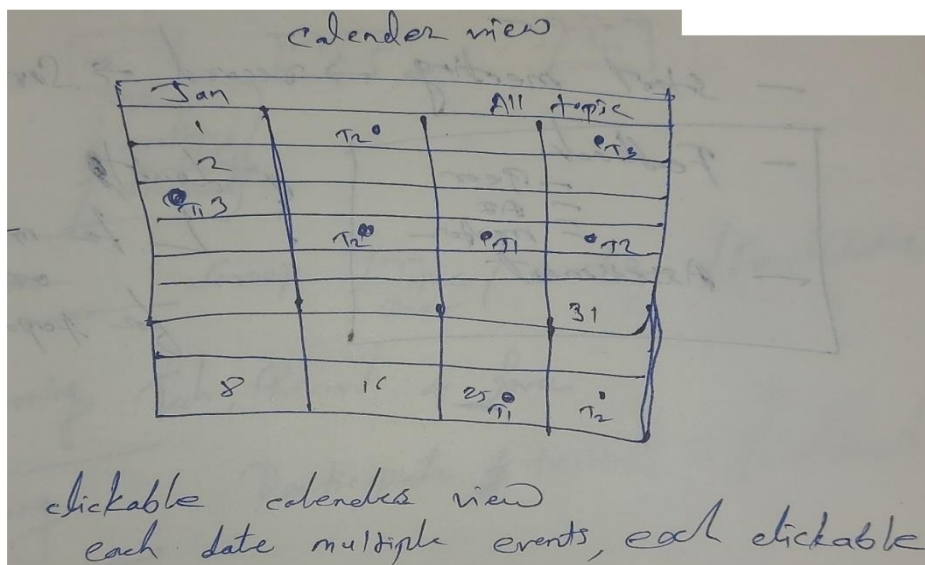 calender view
Jan All topic
1 T2 T3
2
T1 3
T2 T1 T2
31
8 16 25 T1 T2
clickable calender view
each date multiple events, each clickable